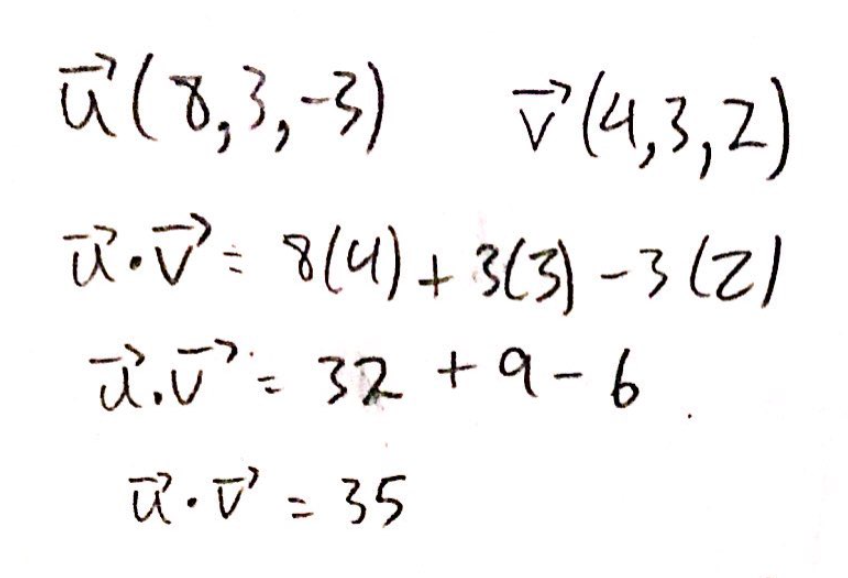 u⃗(8,3,-3) v⃗(4,3,2)
u⃗·v⃗ = 8(4) + 3(3) - 3(2)
u⃗·v⃗ = 32 + 9 - 6
u⃗·v⃗ = 35